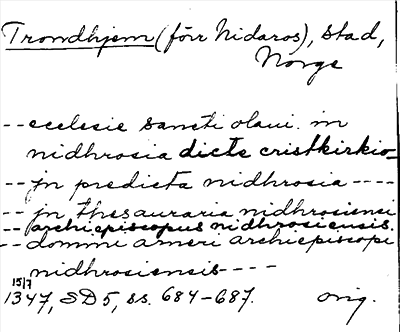 Trondhjem (förr Nidaros), stad,
Norge
-- ecclesie sancti olaui. in
nidhrosia dicte cristkirkio_
-- jn predicta nidhrosia ----
-- jn thesauraria nidhrosiensi
-- archiepiscopus nidhrosiensis.
-- domini arneri archiepiscopi
nidhrosiensis----
15/7
1347, SD5, ss. 684-687. orig.